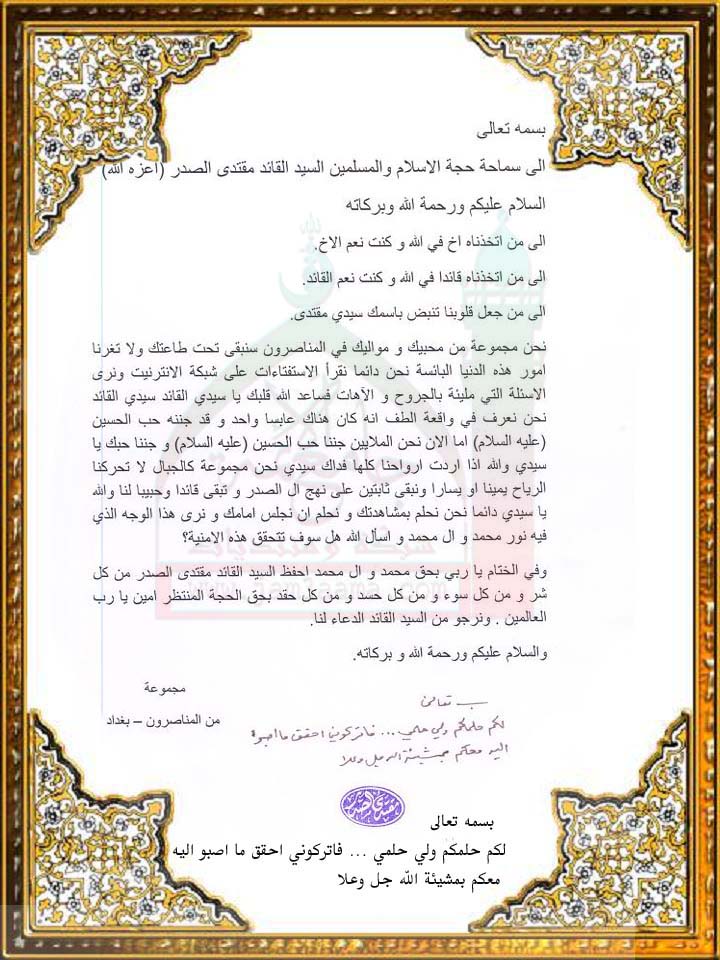 بسمه تعالى
الى سماحة حجة الاسلام والمسلمين السيد القائد مقتدى الصدر (اعزه الله)
السلام عليكم ورحمة الله وبركاته
الى من اتخذناه اخ في الله و كنت نعم الاخ.
الى من اتخذناه قائدا في الله و كنت نعم القائد.
الى من جعل قلوبنا تنبض باسمك سيدي مقتدى.
نحن مجموعة من محبيك و مواليك في المناصرون سنبقى تحت طاعتك ولا تغرنا
امور هذه الدنيا البائسة نحن دائما نقرأ الاستفتاءات على شبكة الانترنيت ونرى
الاسئلة التي مليئة بالجروح و الآهات فساعد الله قلبك يا سيدي القائد سيدي القائد
نحن نعرف في واقعة الطف انه كان هناك عابسا واحد و قد جننه حب الحسين
(عليه السلام) اما الان نحن الملايين جننا حب الحسين (عليه السلام) و جننا حبك يا
سيدي والله اذا اردت ارواحنا كلها فداك سيدي نحن مجموعة كالجبال لا تحركنا
الرياح يمينا او يسارا ونبقى ثابتين على نهج ال الصدر و تبقى قائدا وحبيبا لنا والله
يا سيدي دائما نحن نحلم بمشاهدتك و نحلم ان نجلس امامك و نرى هذا الوجه الذي
فيه نور محمد و ال محمد و اسأل الله هل سوف تتحقق هذه الامنية؟
وفي الختام يا ربي بحق محمد و ال محمد احفظ السيد القائد مقتدى الصدر من كل
شر و من كل سوء و من كل حسد و من كل حقد بحق الحجة المنتظر امين يا رب
العالمين . ونرجو من السيد القائد الدعاء لنا.
والسلام عليكم ورحمة الله و بركاته.
مجموعة
من المناصرون – بغداد
بسمه تعالى
لكم حلمكم ولي حلمي ... فاتركوني احقق ما اصبو
اليه معكم بمشيئة الله جل وعلا
مقتدى الصدر
بسمه تعالى
لكم حلمكم ولي حلمي ... فاتركوني احقق ما اصبو اليه
معكم بمشيئة الله جل وعلا